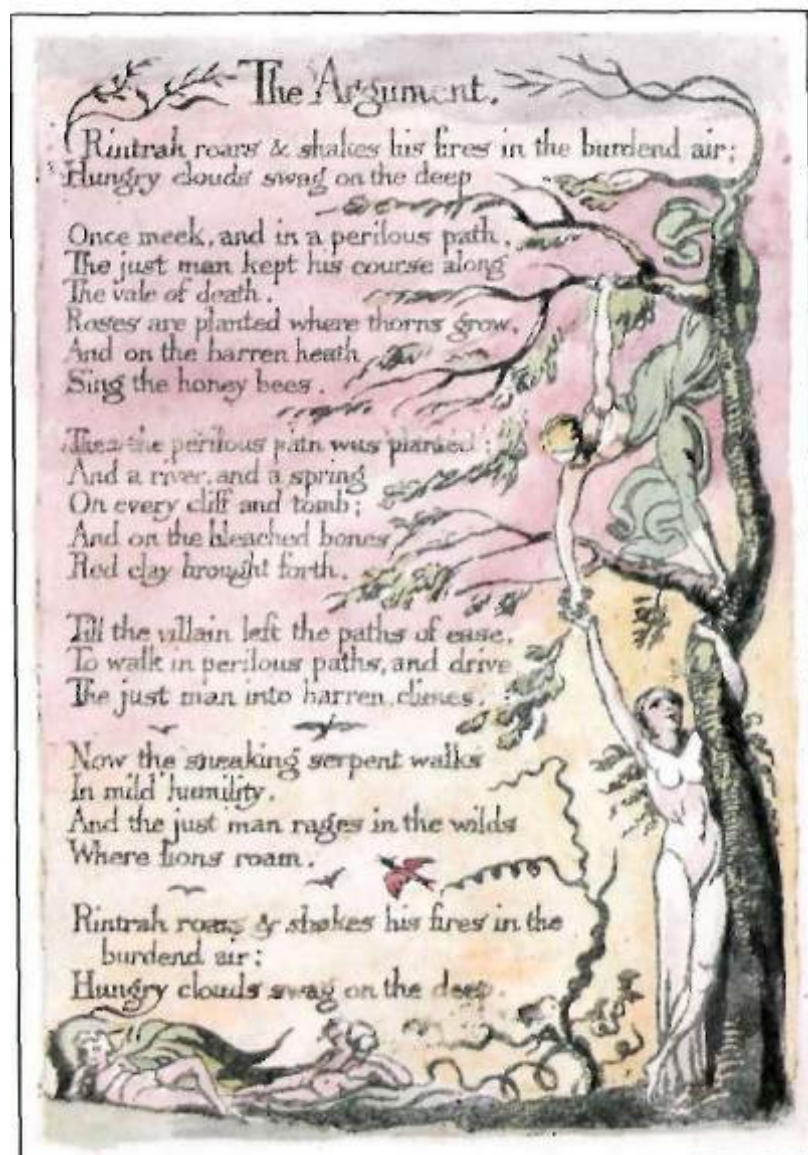 The Argument.
Rintrah roars & shakes his fires in the burdend air;
Hungry clouds swag on the deep
Once meek, and in a perilous path,
The just man kept his course along
The vale of death.
Roses are planted where thorns grow,
And on the barren heath
Sing the honey bees.
Then the perilous path was planted;
And a river, and a spring
On every cliff and tomb;
And on the bleached bones
Red clay brought forth.
Till the villain left the paths of ease,
To walk in perilous paths, and drive
The just man into barren climes.
Now the sneaking serpent walks
In mild humility.
And the just man rages in the wilds
Where lions roam.
Rintrah roars & shakes his fires in the
burdend air;
Hungry clouds swag on the deep.